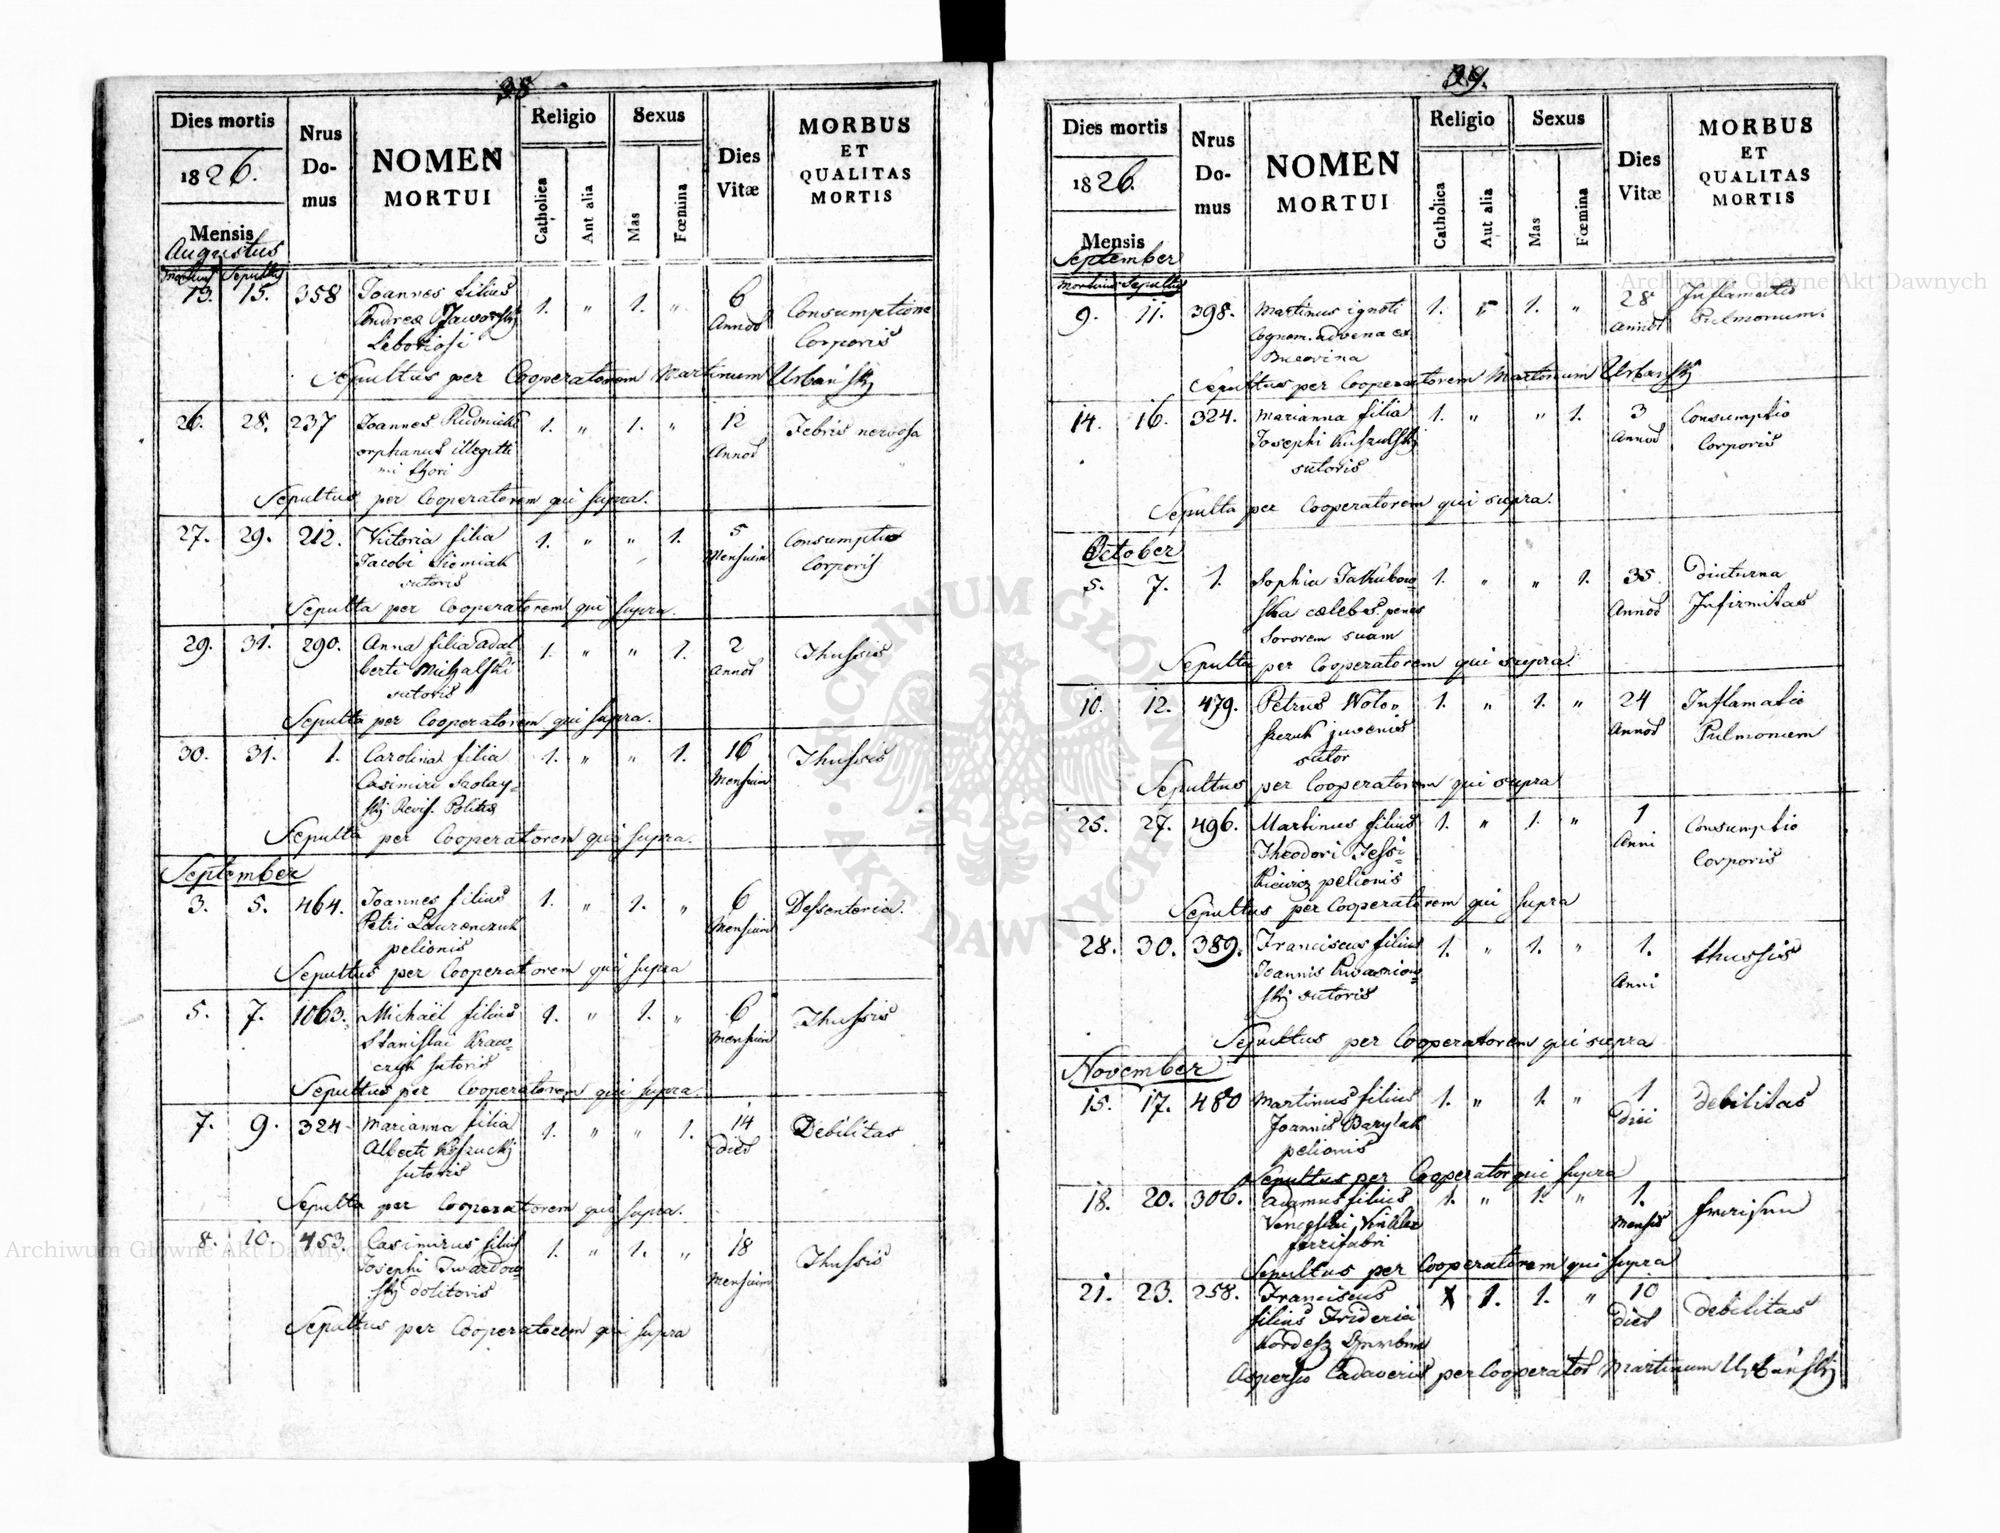 38
Dies mortis
Nrus Domus
NOMEN MORTUI
Religio
Sexus
Dies Vitæ
MORBUS ET QUALITAS MORTIS
1826.
Catholica
Aut alia
Mas
Fœmina
Mensis
Augustus
mortuus Sepultus
13. 15. 358 Joannes filius 1. " 1. " 6 Consumptione
Andrea Jaworskj Annos Corporis
Laboriosi
Sepultus per Cooperatorem Martinum Urbańskj
26. 28. 237 Joannes Rudnicki 1. " 1. " 12 Febris nervosa
orphanus illegitti Annos
mi thori
Sepultus per Cooperatorem qui supra.
27. 29. 212. Victoria filia 1. " " 1. 5 Consumptio
Jacobi Siemiak Mensium Corporis
sutoris
Sepulta per Cooperatorem qui supra.
29. 31. 290. Anna filia Adal= 1. " " 1. 2 Thussis
berti Michalski Annos
sutoris
Sepulta per Cooperatorem qui supra.
30. 31. 1. Carolina filia 1. " " 1. 16 Thussis
Casimiri Szolay= Mensium
skj Revis. Politia
Sepulta per Cooperatorem qui supra.
September
3. 5. 464. Joannes filius 1. " 1. " 6 Dessenteria.
Petri Laurenczuk Mensium
pelionis
Sepultus per Cooperatorem qui supra
5. 7. 1063. Michaël filius 1. " 1. " 6 Thussis
Stanislai Kraw= Mensium
czyk sutoris
Sepultus per Cooperatorem qui supra.
7. 9. 324 Marianna filia 1. " " 1. 14 Debilitas
Alberti Dies
sutoris
Sepulta per Cooperatorem qui supra.
8. 10. 453. Casimirus filius 1. " 1. " 18 Thussis
Josephi Twardow= Mensium
skj dolitoris
Sepultus per Cooperatorem qui supra
39.
Dies mortis
Nrus Domus
NOMEN MORTUI
Religio
Sexus
Dies Vitæ
MORBUS ET QUALITAS MORTIS
1826.
Catholica
Aut alia
Mas
Fœmina
Mensis
September
mortuus Sepultus
9. 11. 398. Martinus ignoti 1. " 1. " 28 Inflamatio
Cognom. advena ex Annos Pulmonum.
Bucovina
Sepultus per Cooperatorem Martinum Urbanskj
14. 16. 324. Marianna filia 1. " " 1. 3 Consumptio
Josephi Annos Corporis
sutoris
Sepulta per Cooperatorem qui supra.
October
5. 7. 1. Sophia Jakubow 1. " " 1. 35 diuturna
ska cælebs penes Annos Infirmitas
Sororem suam
Sepulta per Cooperatorem qui supra.
10. 12. 479. Petrus Woło= 1. " 1. " 24 Inflamatio
szczuk juvenis Annos Pulmonum
sutor
Sepultus per Cooperatorem qui supra
25. 27. 496. Martinus filius 1. " 1. " 1 Consumptio
Theodori Jessi= Anni Corporis
kiewicz pelionis
Sepultus per Cooperatorem qui supra
28. 30. 389. Franciscus filius 1. " 1. " 1. thussis
Joannis Kwasniow Anni
skj sutoris
Sepultus per Cooperatorem qui supra
November
15. 17. 480 Martinus filius 1. " 1. " 1 debilitas
Joannis Barylak Diei
pelionis
Sepultus per Cooperator qui supra
18. 20. 306. Adamus filius 1. " 1. " 1.
Mensis
ferrifabri
Sepultus per Cooperatorem qui supra
21. 23. 258. Franciscus X 1. 1. " 10 debilitas
filius Friderici Dies
Kordesz
Aspersio Cadaveris per Cooperator Martinum Urbańskj
Archiwum Główne Akt Dawnych
Archiwum Główne Akt Dawnych
ARCHIWUM GŁÓWNE · AKT DAWNYCH ·